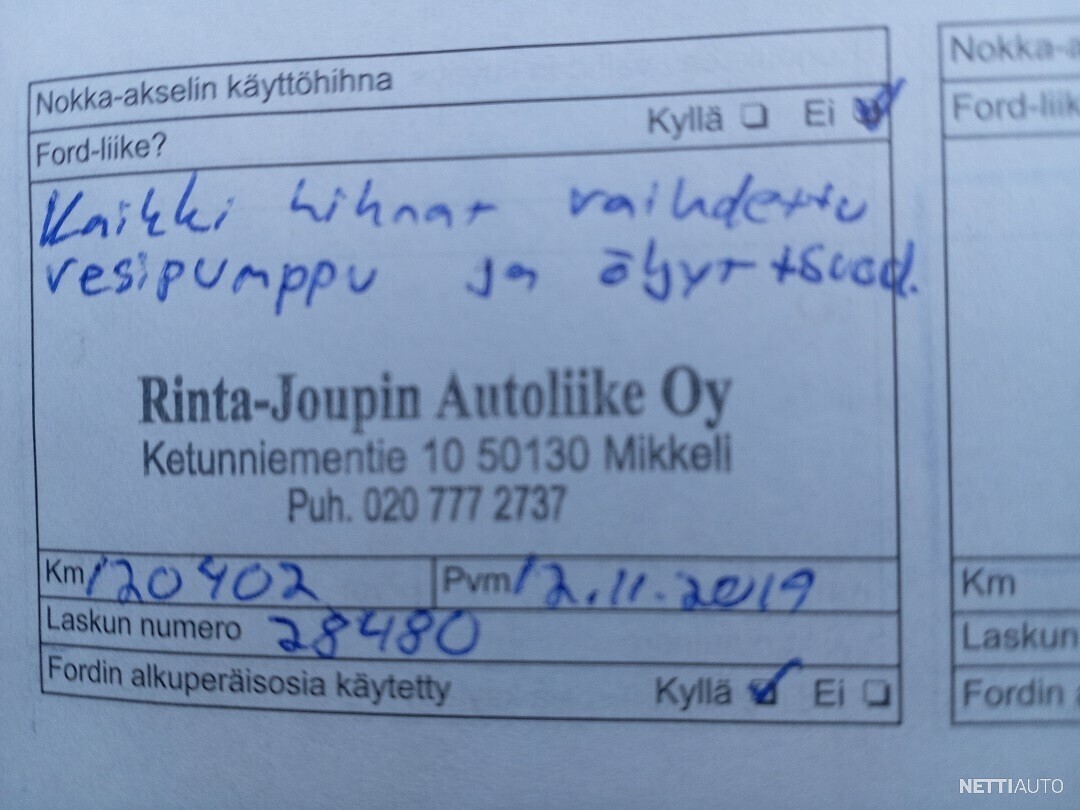 Nokka-akselin käyttöhihna
Ford-liike? Kyllä ❏ Ei ☑
Kaikki hihnat vaihdettu
vesipumppu ja öljyt + suod.
Rinta-Joupin Autoliike Oy
Ketunniementie 10 50130 Mikkeli
Puh. 020 777 2737
Km 120402 Pvm 12.11.2019
Laskun numero 28480
Fordin alkuperäisosia käytetty Kyllä ☑ Ei ❏
Nokka-a
Ford-liik
Km
Laskun
Fordin
NETTIAUTO